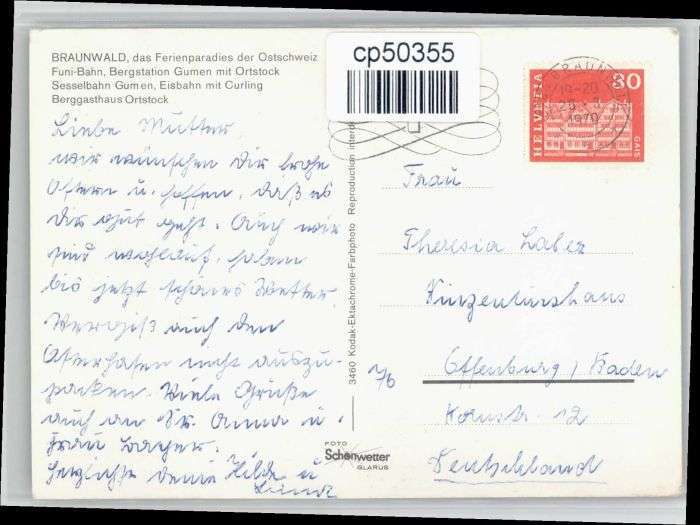 BRAUNWALD, das Ferienparadies der Ostschweiz
Funi-Bahn, Bergstation Gumen mit Ortstock
Sesselbahn Gumen, Eisbahn mit Curling
Berggasthaus Ortstock
cp50355
HELVETIA
80
GAIS
BRAUNWALD
19-20
1970
Liebe Mutter,
wir wünschen Dir frohe
Ostern u. hoffen, daß es
Dir gut geht. Auch wir
sind wohlauf, haben
bis jetzt schönes Wetter.
Vergiß auch den
Osterhasen nicht auszu-
packen. Viele Grüße
auch an Sr. Anna u.
Frau
Herzlichst Deine Hilde u.
3460 Kodak-Ektachrome-Farbphoto Reproduction interd
Frau
Theresia Laber
Vinzentiushaus
Offenburg / Baden
Kornstr. 12
Deutschland
FOTO
Schönwetter
GLARUS